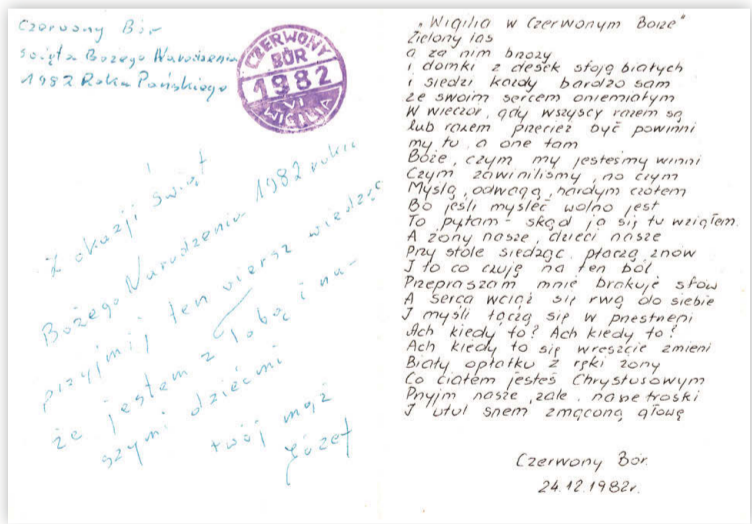 Czerwony Bór
święta Bożego Narodzenia
1982 Roku Pańskiego
CZERWONY
BÓR
1982
VI
WIGILIA
Z okazji świąt
Bożego Narodzenia 1982 roku
przyjmij ten wiersz wiedząc
że jestem z Tobą i na-
szymi dziećmi
twój mąż
Józef
"Wigilia w Czerwonym Borze"
Zielony las
a za nim brzozy
i domki z desek stoją białych
i siedzi każdy bardzo sam
ze swoim sercem oniemiałym
W wieczór, gdy wszyscy razem są
lub razem przecież być powinni
my tu, a one tam
Boże, czym my jesteśmy winni
Czym zawiniliśmy, no czym
Myślą, odwagą, hardym czołem
Bo jeśli myśleć wolno jest
To pytam - skąd ja się tu wziąłem.
A żony nasze, dzieci nasze
Przy stole siedząc, płaczą znów
I to co czuję na ten ból
Przepraszam mnie brakuje słów
A serca wciąż się rwą do siebie
I myśli łączą się w przestrzeni
Ach kiedy to? Ach kiedy to?
Ach kiedy to się wreszcie zmieni
Biały opłatku z ręki żony
Co ciałem jesteś Chrystusowym
Przyjm nasze, żale, nasze troski
I utul snem zmąconą głowę
Czerwony Bór.
24.12.1982r.